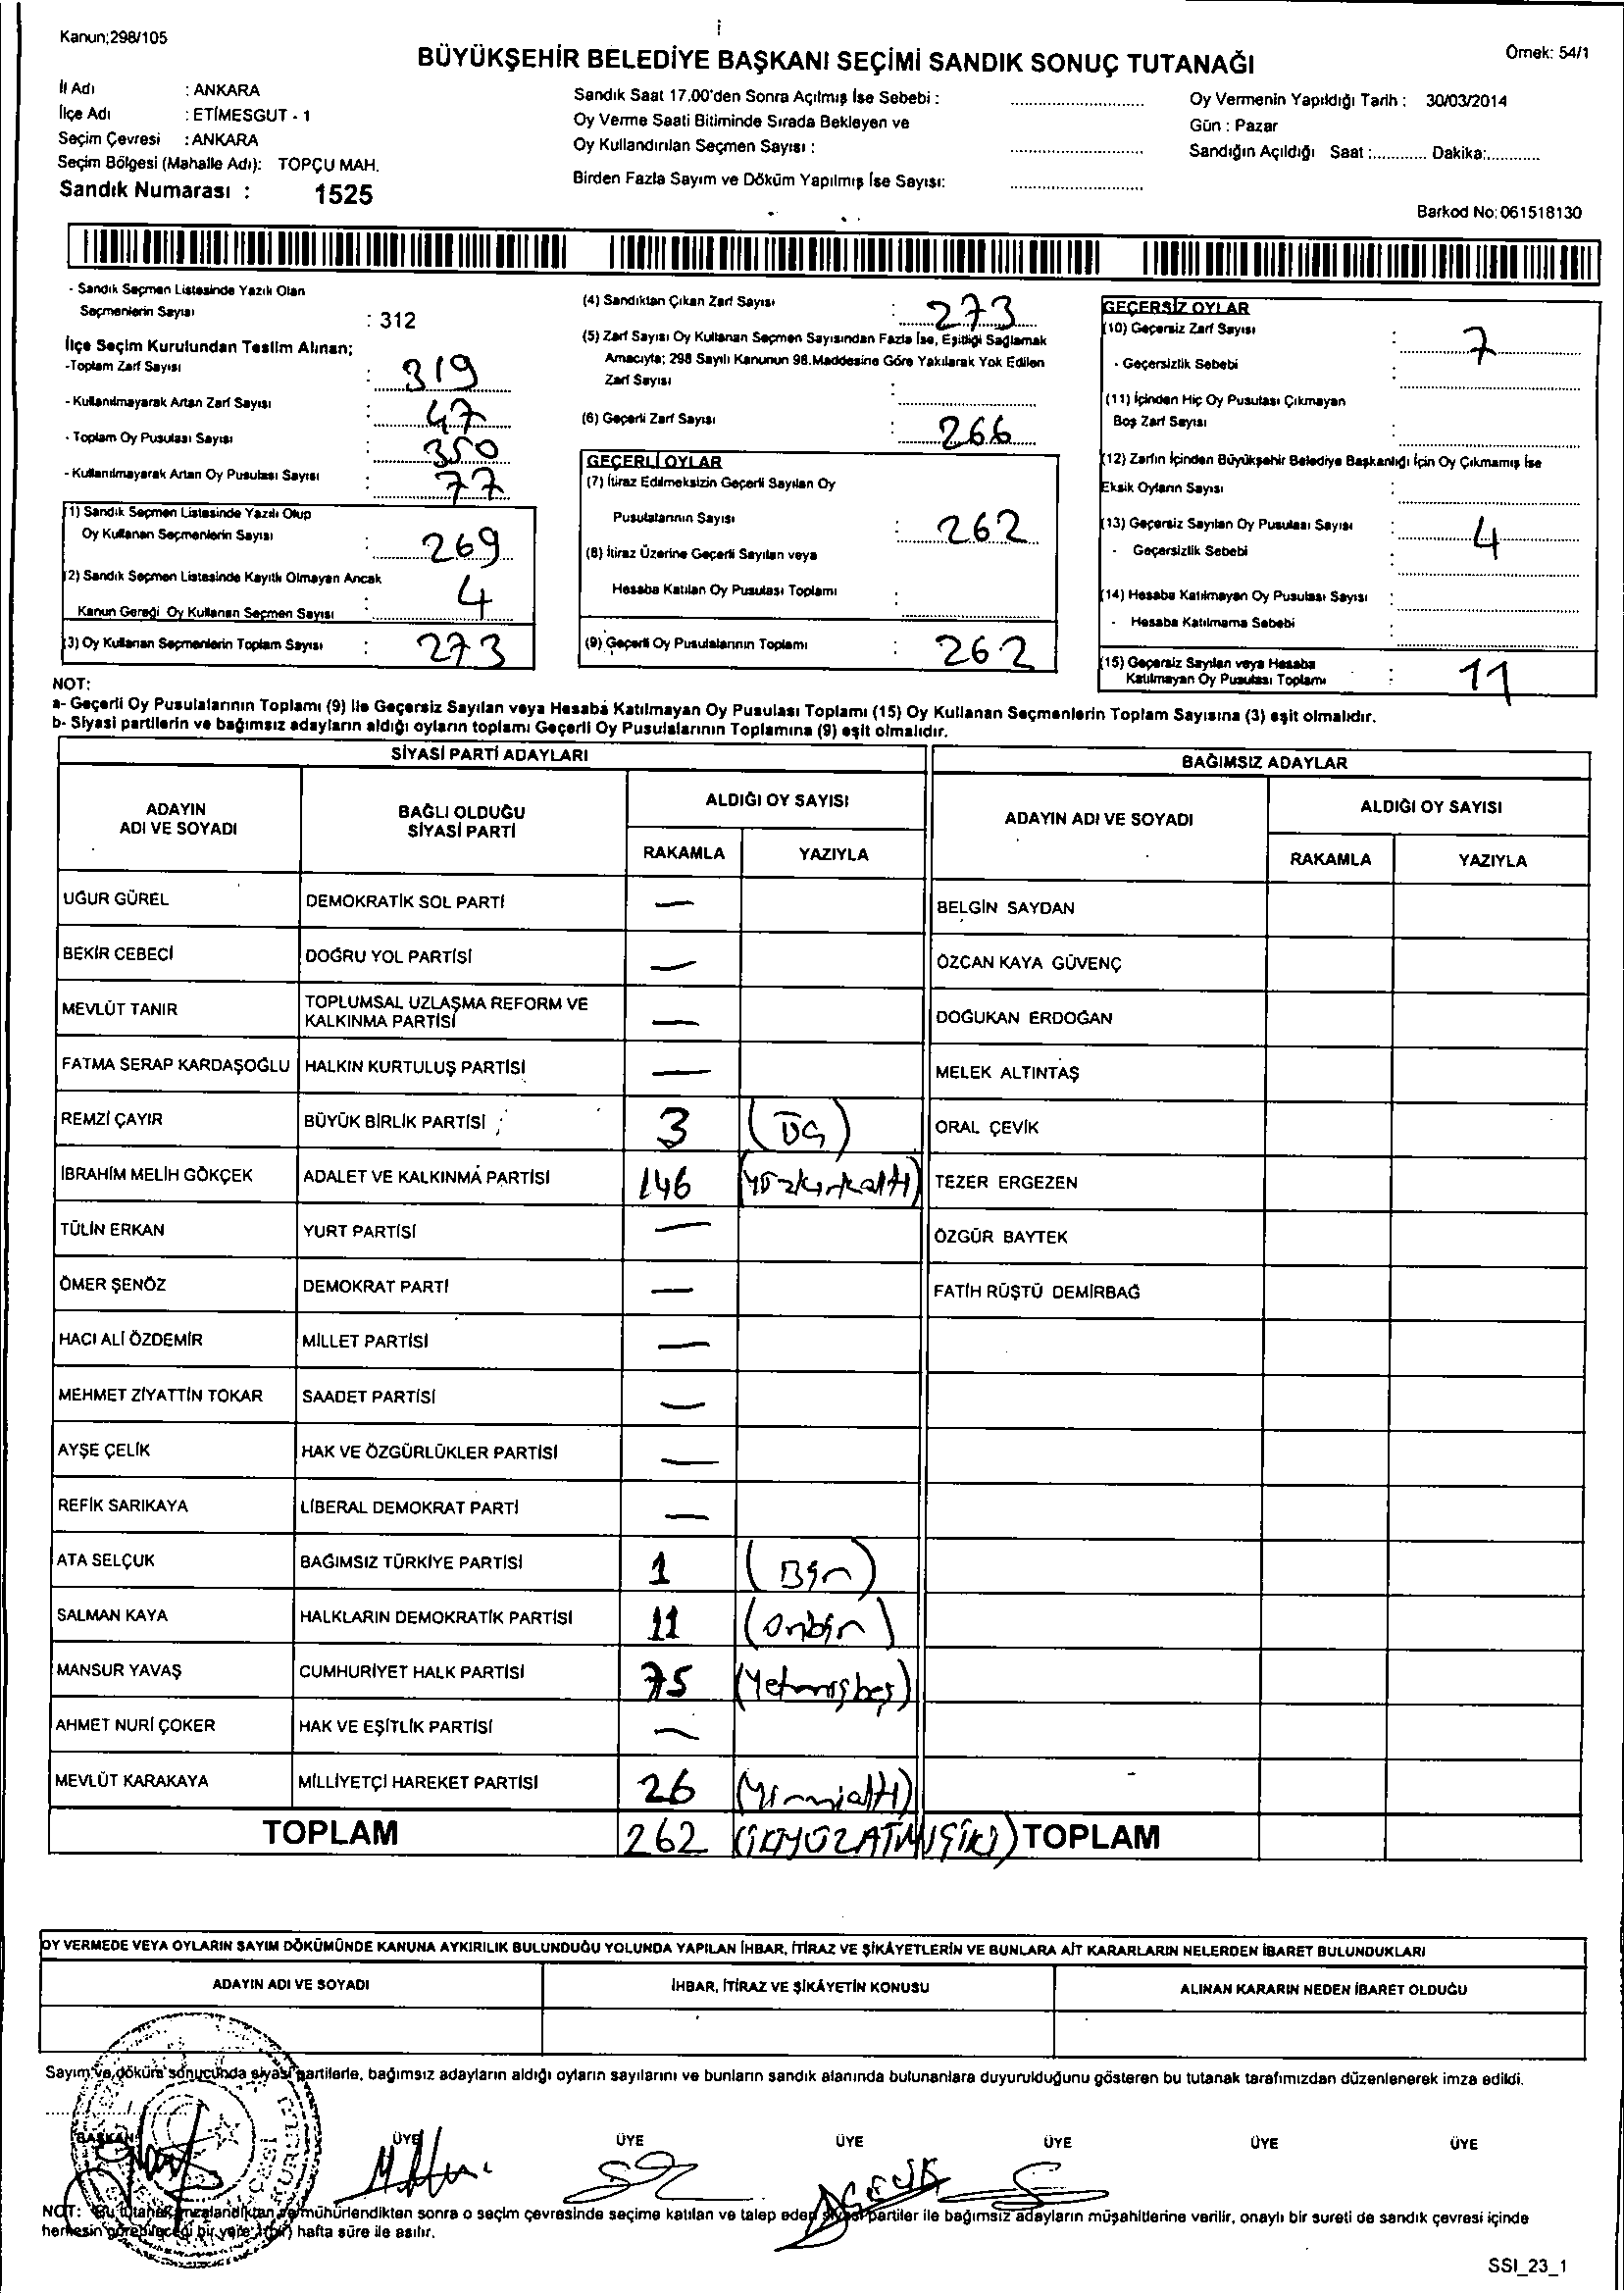 Kanun;298/105
BÜYÜKŞEHİR BELEDİYE BAŞKANI SEÇİMİ SANDIK SONUÇ TUTANAĞI
Örnek: 54/1
İl Adı : ANKARA
İlçe Adı : ETİMESGUT - 1
Seçim Çevresi : ANKARA
Seçim Bölgesi (Mahalle Adı): TOPÇU MAH.
Sandık Numarası : 1525
Sandık Saat 17.00'den Sonra Açılmış İse Sebebi : ............................
Oy Verme Saati Bitiminde Sırada Bekleyen ve
Oy Kullandırılan Seçmen Sayısı : ............................
Birden Fazla Sayım ve Döküm Yapılmış İse Sayısı: ............................
Oy Vermenin Yapıldığı Tarih : 30/03/2014
Gün : Pazar
Sandığın Açıldığı Saat :............ Dakika:............
Barkod No: 061518130
- Sandık Seçmen Listesinde Yazılı Olan
Seçmenlerin Sayısı : 312
İlçe Seçim Kurulundan Teslim Alınan;
-Toplam Zarf Sayısı : 319
- Kullanılmayarak Artan Zarf Sayısı : 47
- Toplam Oy Pusulası Sayısı : 350
- Kullanılmayarak Artan Oy Pusulası Sayısı : 77
(1) Sandık Seçmen Listesinde Yazılı Olup
Oy Kullanan Seçmenlerin Sayısı : 269
(2) Sandık Seçmen Listesinde Kayıtlı Olmayan Ancak
Kanun Gereği Oy Kullanan Seçmen Sayısı : 4
(3) Oy Kullanan Seçmenlerin Toplam Sayısı : 273
(4) Sandıktan Çıkan Zarf Sayısı : 273
(5) Zarf Sayısı Oy Kullanan Seçmen Sayısından Fazla İse, Eşitliği Sağlamak
Amacıyla; 298 Sayılı Kanunun 98.Maddesine Göre Yakılarak Yok Edilen
Zarf Sayısı :
(6) Geçerli Zarf Sayısı : 266
GEÇERLİ OYLAR
(7) İtiraz Edilmeksizin Geçerli Sayılan Oy
Pusulalarının Sayısı : 262
(8) İtiraz Üzerine Geçerli Sayılan veya
Hesaba Katılan Oy Pusulası Toplamı :
(9) Geçerli Oy Pusulalarının Toplamı : 262
GEÇERSİZ OYLAR
(10) Geçersiz Zarf Sayısı : 7
- Geçersizlik Sebebi :
(11) İçinden Hiç Oy Pusulası Çıkmayan
Boş Zarf Sayısı :
(12) Zarfın İçinden Büyükşehir Belediye Başkanlığı İçin Oy Çıkmamış İse
Eksik Oyların Sayısı :
(13) Geçersiz Sayılan Oy Pusulası Sayısı : 4
- Geçersizlik Sebebi
(14) Hesaba Katılmayan Oy Pusulası Sayısı :
- Hesaba Katılmama Sebebi :
(15) Geçersiz Sayılan veya Hesaba
Katılmayan Oy Pusulası Toplamı : 11
NOT:
a- Geçerli Oy Pusulalarının Toplamı (9) ile Geçersiz Sayılan veya Hesaba Katılmayan Oy Pusulası Toplamı (15) Oy Kullanan Seçmenlerin Toplam Sayısına (3) eşit olmalıdır.
b- Siyasi partilerin ve bağımsız adayların aldığı oyların toplamı Geçerli Oy Pusulalarının Toplamına (9) eşit olmalıdır.
SİYASİ PARTİ ADAYLARI
BAĞIMSIZ ADAYLAR
ADAYIN ADI VE SOYADI
BAĞLI OLDUĞU SİYASİ PARTİ
ALDIĞI OY SAYISI
RAKAMLA YAZIYLA
ADAYIN ADI VE SOYADI
ALDIĞI OY SAYISI
RAKAMLA YAZIYLA
UĞUR GÜREL DEMOKRATİK SOL PARTİ — BELGİN SAYDAN
BEKİR CEBECİ DOĞRU YOL PARTİSİ — ÖZCAN KAYA GÜVENÇ
MEVLÜT TANIR TOPLUMSAL UZLAŞMA REFORM VE KALKINMA PARTİSİ — DOĞUKAN ERDOĞAN
FATMA SERAP KARDAŞOĞLU HALKIN KURTULUŞ PARTİSİ — MELEK ALTINTAŞ
REMZİ ÇAYIR BÜYÜK BİRLİK PARTİSİ 3 (Üç) ORAL ÇEVİK
İBRAHİM MELİH GÖKÇEK ADALET VE KALKINMA PARTİSİ 146 (Yüzkırkaltı) TEZER ERGEZEN
TÜLİN ERKAN YURT PARTİSİ — ÖZGÜR BAYTEK
ÖMER ŞENÖZ DEMOKRAT PARTİ — FATİH RÜŞTÜ DEMİRBAĞ
HACI ALİ ÖZDEMİR MİLLET PARTİSİ —
MEHMET ZİYATTİN TOKAR SAADET PARTİSİ —
AYŞE ÇELİK HAK VE ÖZGÜRLÜKLER PARTİSİ —
REFİK SARIKAYA LİBERAL DEMOKRAT PARTİ —
ATA SELÇUK BAĞIMSIZ TÜRKİYE PARTİSİ 1 (Bir)
SALMAN KAYA HALKLARIN DEMOKRATİK PARTİSİ 11 (Onbir)
MANSUR YAVAŞ CUMHURİYET HALK PARTİSİ 75 (Yetmişbeş)
AHMET NURİ ÇOKER HAK VE EŞİTLİK PARTİSİ —
MEVLÜT KARAKAYA MİLLİYETÇİ HAREKET PARTİSİ 26 (Yirmialtı)
TOPLAM 262 (İKİYÜZATMIŞİKİ) TOPLAM
OY VERMEDE VEYA OYLARIN SAYIM DÖKÜMÜNDE KANUNA AYKIRILIK BULUNDUĞU YOLUNDA YAPILAN İHBAR, İTİRAZ VE ŞİKÂYETLERİN VE BUNLARA AİT KARARLARIN NELERDEN İBARET BULUNDUKLARI
ADAYIN ADI VE SOYADI İHBAR, İTİRAZ VE ŞİKÂYETİN KONUSU ALINAN KARARIN NEDEN İBARET OLDUĞU
Sayım ve döküm sonucunda siyasi partilerle, bağımsız adayların aldığı oyların sayılarını ve bunların sandık alanında bulunanlara duyurulduğunu gösteren bu tutanak tarafımızdan düzenlenerek imza edildi.
BAŞKAN ÜYE ÜYE ÜYE ÜYE ÜYE ÜYE
NOT: Bu tutanak imzalandıktan ve mühürlendikten sonra o seçim çevresinde seçime katılan ve talep eden siyasi partiler ile bağımsız adayların müşahitlerine verilir, onaylı bir sureti de sandık çevresi içinde
herkesin görebileceği bir yere (bir) hafta süre ile asılır.
SSI_23_1